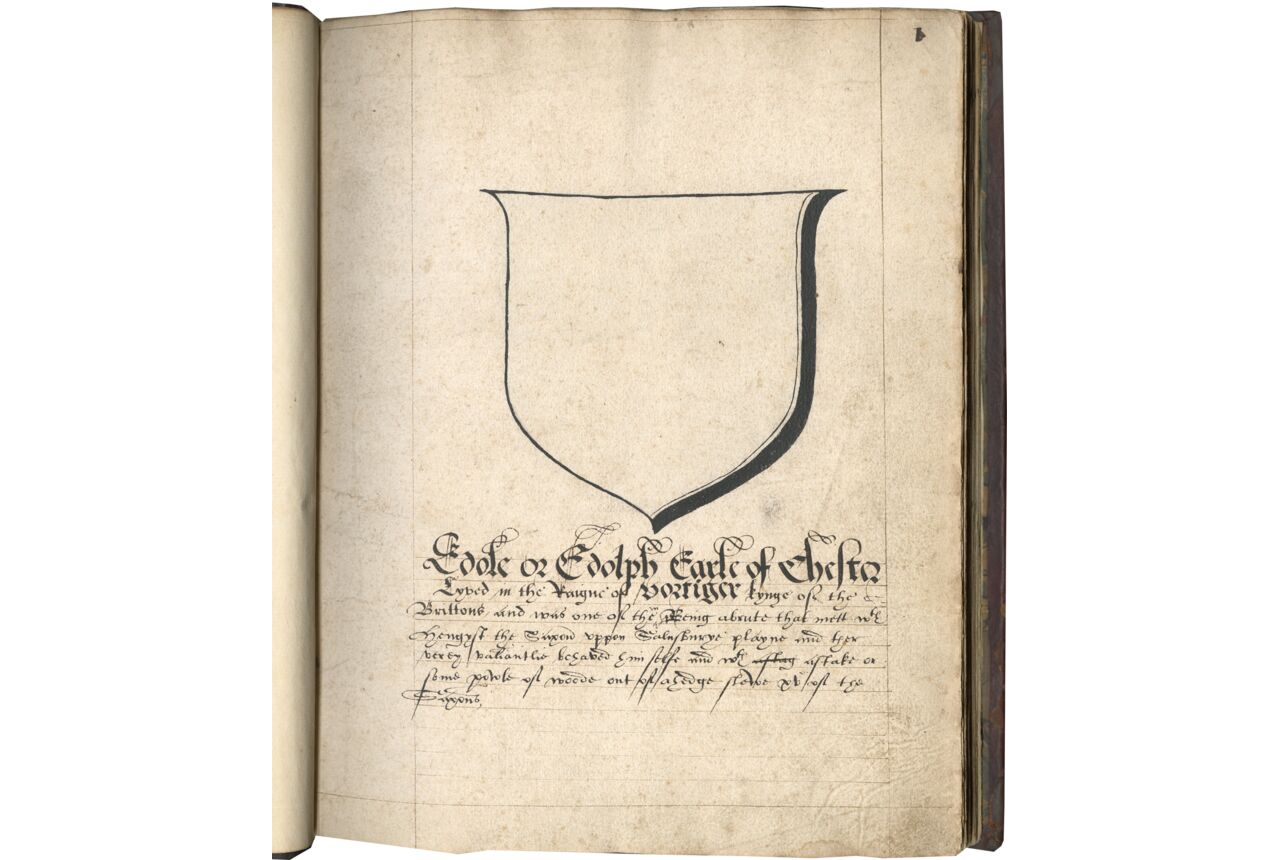 1
Edole or Edolph Earle of Chester
Lyved in the Raigne of Vortiger kynge of the
Brittons and was one of the being abrute that mett wth
Hengyst the Saxon uppon Salusburye playne and ther
verey valiantlie behaved him selfe and wth astag astake or
some powle of woode out of ahedge slewe xv of the
Saxons